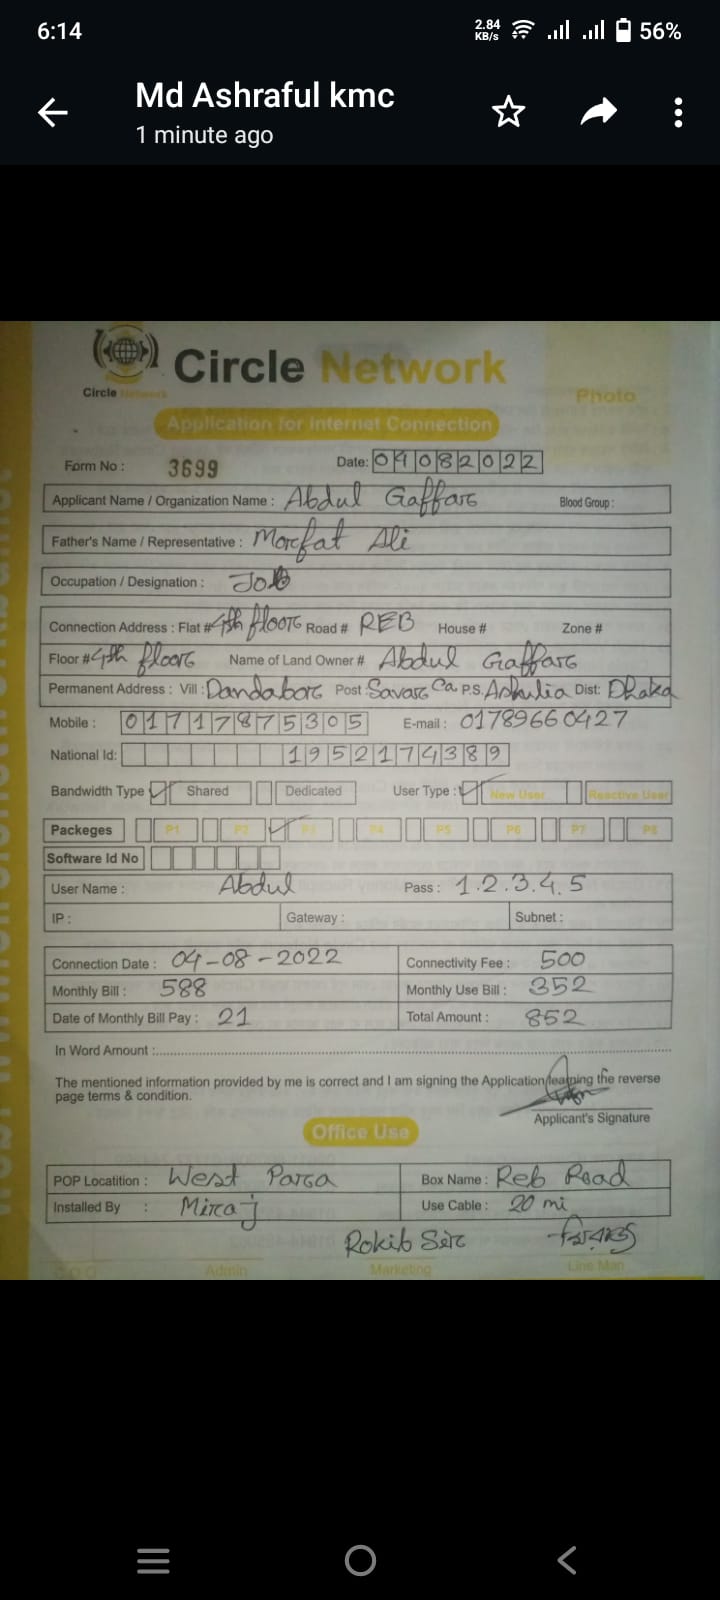 6:14 2.84 KB/s 56%
Md Ashraful kmc
1 minute ago
Circle Network
Circle Network
Photo
Application for Internet Connection
Form No : 3699 Date: 04082022
Applicant Name / Organization Name : Abdul Gaffar Blood Group :
Father's Name / Representative : Morfat Ali
Occupation / Designation : Job
Connection Address : Flat # 4th floor Road # REB House # Zone #
Floor # 4th floor Name of Land Owner # Abdul Gaffar
Permanent Address : Vill : Dandabor Post : Savar Ca P.S. Ashulia Dist: Dhaka
Mobile : 01717875305 E-mail : 01789660427
National Id: 1952174389
Bandwidth Type Shared Dedicated User Type : New User Reactive User
Packeges P1 P2 P3 P4 P5 P6 P7 P8
Software Id No
User Name : Abdul Pass : 1.2.3.4.5
IP : Gateway : Subnet :
Connection Date : 04-08-2022 Connectivity Fee : 500
Monthly Bill : 588 Monthly Use Bill : 352
Date of Monthly Bill Pay : 21 Total Amount : 852
In Word Amount :
The mentioned information provided by me is correct and I am signing the Application the reverse
page terms & condition.
Applicant's Signature
Office Use
POP Locatition : West Para Box Name : Reb Road
Installed By : Miraj Use Cable : 20 mi
Rokib Sir
Admin Marketing Line Man